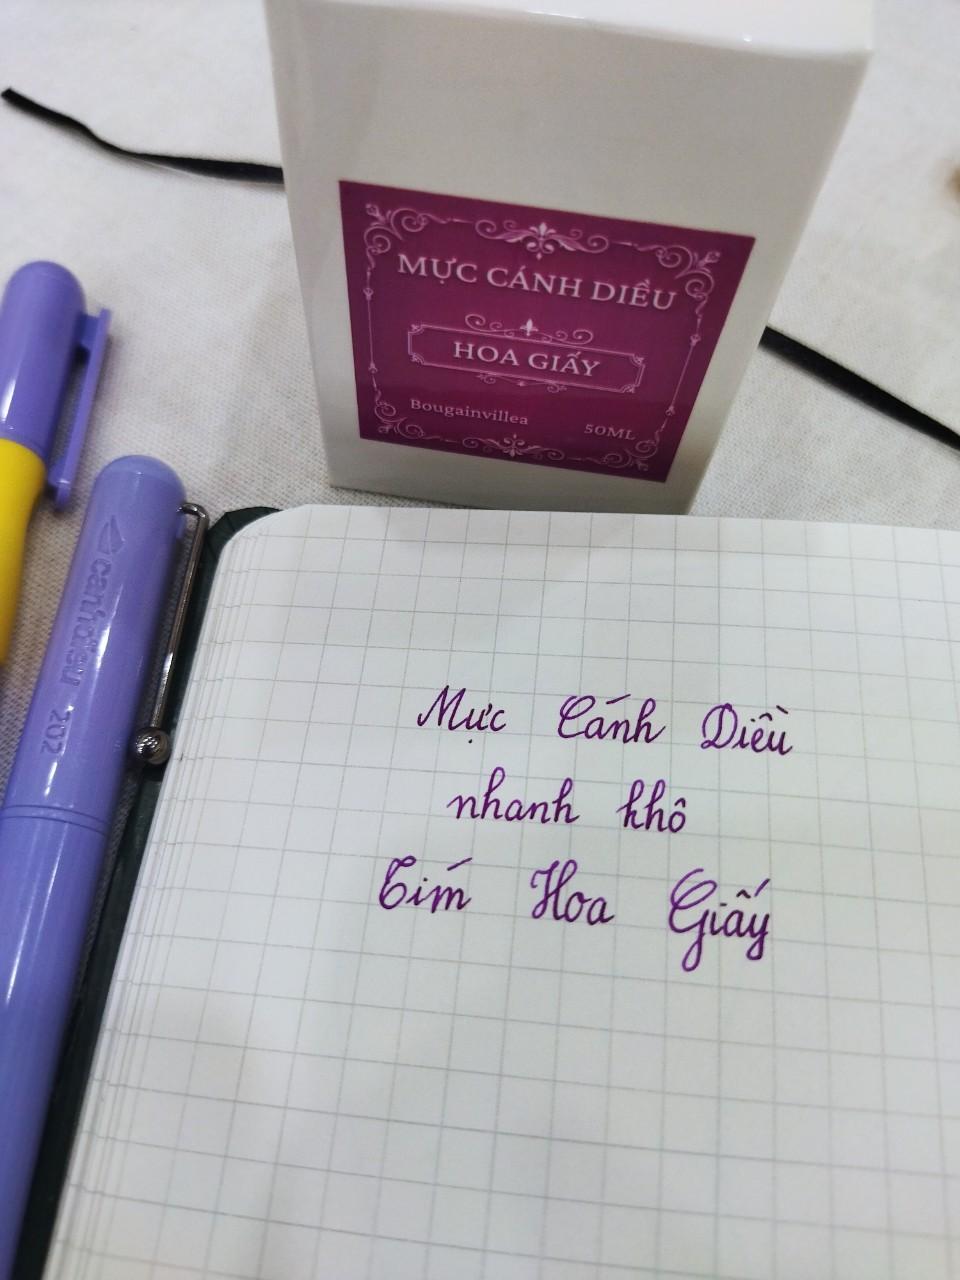 MỰC CÁNH DIỀU
HOA GIẤY
Bougainvillea
50ML
canhdieu 202
Mực Cánh Diều
nhanh khô
Tím Hoa Giấy